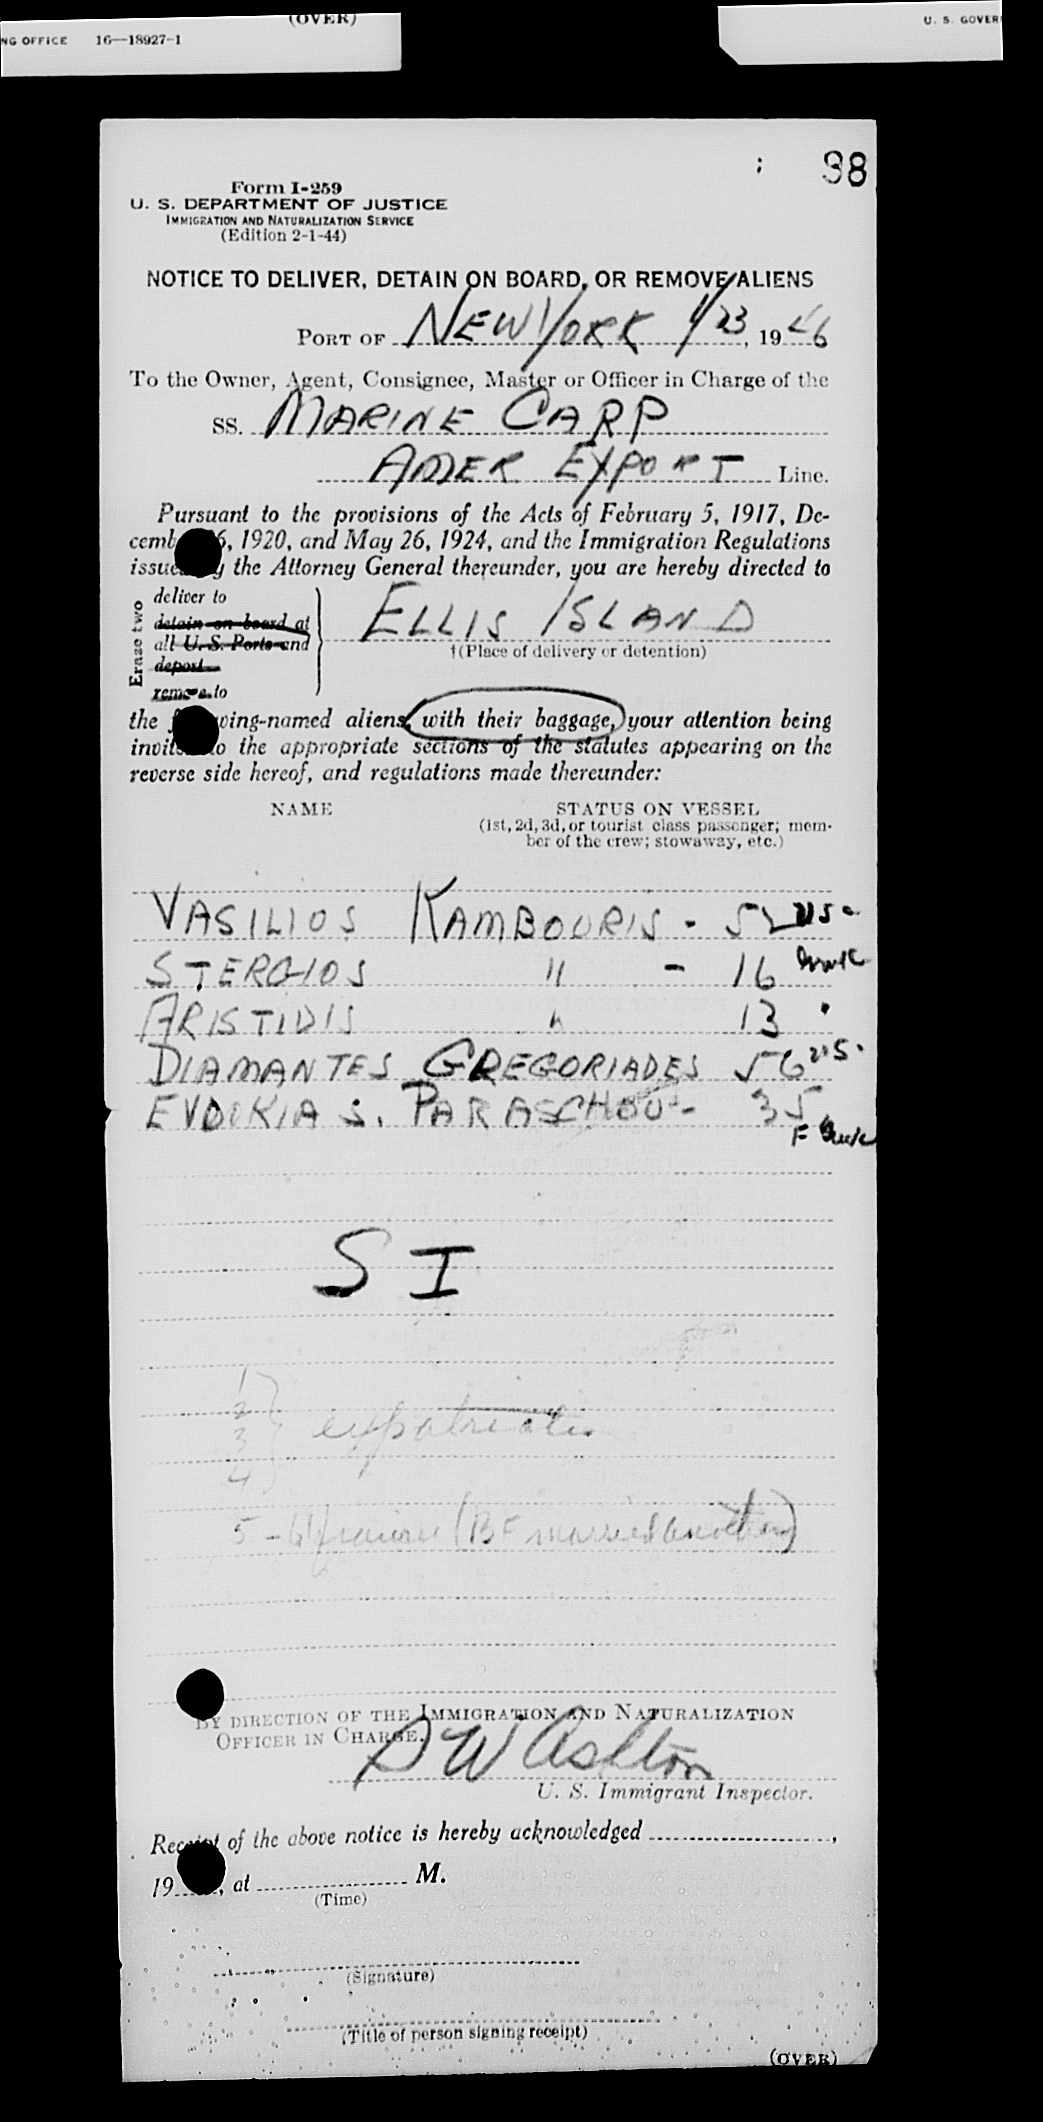 (OVER)
NG OFFICE 16—18927-1
U. S. GOVER
98
Form I-259
U. S. DEPARTMENT OF JUSTICE
IMMIGRATION AND NATURALIZATION SERVICE
(Edition 2-1-44)
NOTICE TO DELIVER, DETAIN ON BOARD, OR REMOVE ALIENS
PORT OF NEW YORK 1/23, 19 46
To the Owner, Agent, Consignee, Master or Officer in Charge of the
SS. MARINE CARP
AMER EXPORT Line.
Pursuant to the provisions of the Acts of February 5, 1917, De-
cemb 6, 1920, and May 26, 1924, and the Immigration Regulations
issued y the Attorney General thereunder, you are hereby directed to
Erase two
deliver to
detain on board at
all U. S. Ports and
deport
remove to
ELLIS ISLAND
†(Place of delivery or detention)
the f wing-named aliens, with their baggage, your attention being
invite to the appropriate sections of the statutes appearing on the
reverse side hereof, and regulations made thereunder:
NAME STATUS ON VESSEL
(1st, 2d, 3d, or tourist class passenger; mem-
ber of the crew; stowaway, etc.)
VASILIOS KAMBOURIS - 52 US-
STERGIOS " - 16 Greek
ARISTIDIS " 13 "
DIAMANTES GREGORIADES 56 US.
EVDOKIA S. PARASCHOU - 35
F Greek
S I
1
2
3
4
expatriates
5 - (BF married another)
BY DIRECTION OF THE IMMIGRATION AND NATURALIZATION
OFFICER IN CHARGE.
S W Ashton
U. S. Immigrant Inspector.
Receipt of the above notice is hereby acknowledged ,
19 , at M.
(Time)
(Signature)
(Title of person signing receipt)
(OVER)